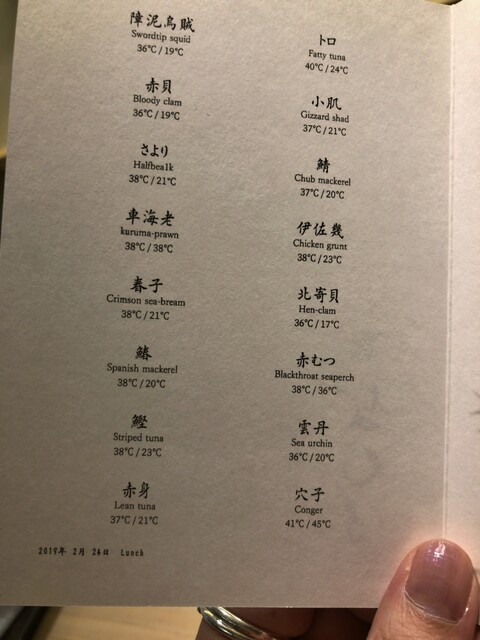 障泥烏賊
Swordtip squid
36℃ / 19℃
赤貝
Bloody clam
36℃ / 19℃
さより
Halfbea1k
38℃ / 21℃
車海老
kuruma-prawn
38℃ / 38℃
春子
Crimson sea-bream
38℃ / 21℃
鰆
Spanish mackerel
38℃ / 20℃
鰹
Striped tuna
38℃ / 23℃
赤身
Lean tuna
37℃ / 21℃
トロ
Fatty tuna
40℃ / 24℃
小肌
Gizzard shad
37℃ / 21℃
鯖
Chub mackerel
37℃ / 20℃
伊佐幾
Chicken grunt
38℃ / 23℃
北寄貝
Hen-clam
36℃ / 17℃
赤むつ
Blackthroat seaperch
38℃ / 36℃
雲丹
Sea urchin
36℃ / 20℃
穴子
Conger
41℃ / 45℃
2019年 2月 26日 Lunch